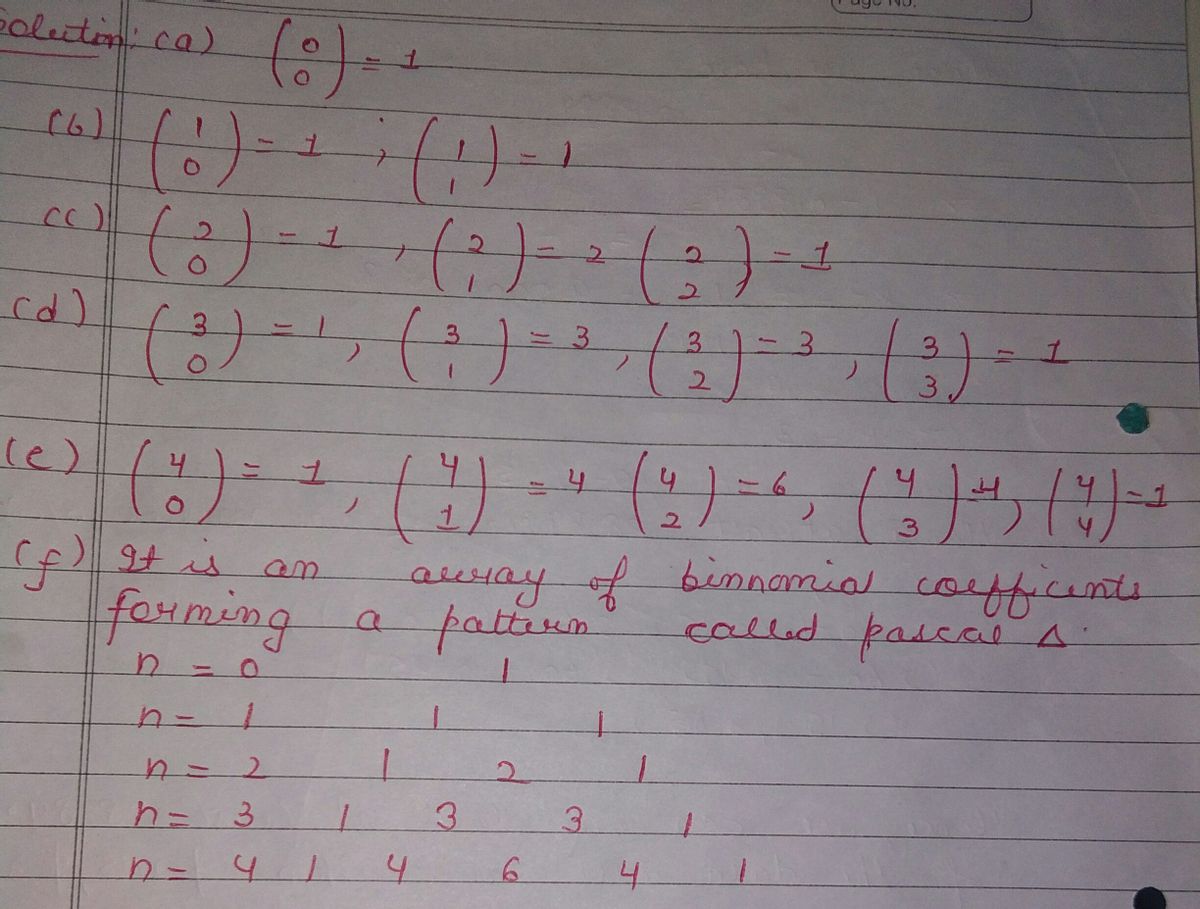 Solution: (a) (0 0) = 1
(b) (1 0) = 1 ; (1 1) = 1
(c) (2 0) = 1 , (2 1) = 2 (2 2) = 1
(d) (3 0) = 1 , (3 1) = 3 , (3 2) = 3 , (3 3) = 1
(e) (4 0) = 1 , (4 1) = 4 (4 2) = 6 , (4 3) = 4 , (4 4) = 1
(f) It is an array of binnomial coefficents
forming a pattern called pascal Δ.
n = 0 1
n = 1 1 1
n = 2 1 2 1
n = 3 1 3 3 1
n = 4 1 4 6 4 1